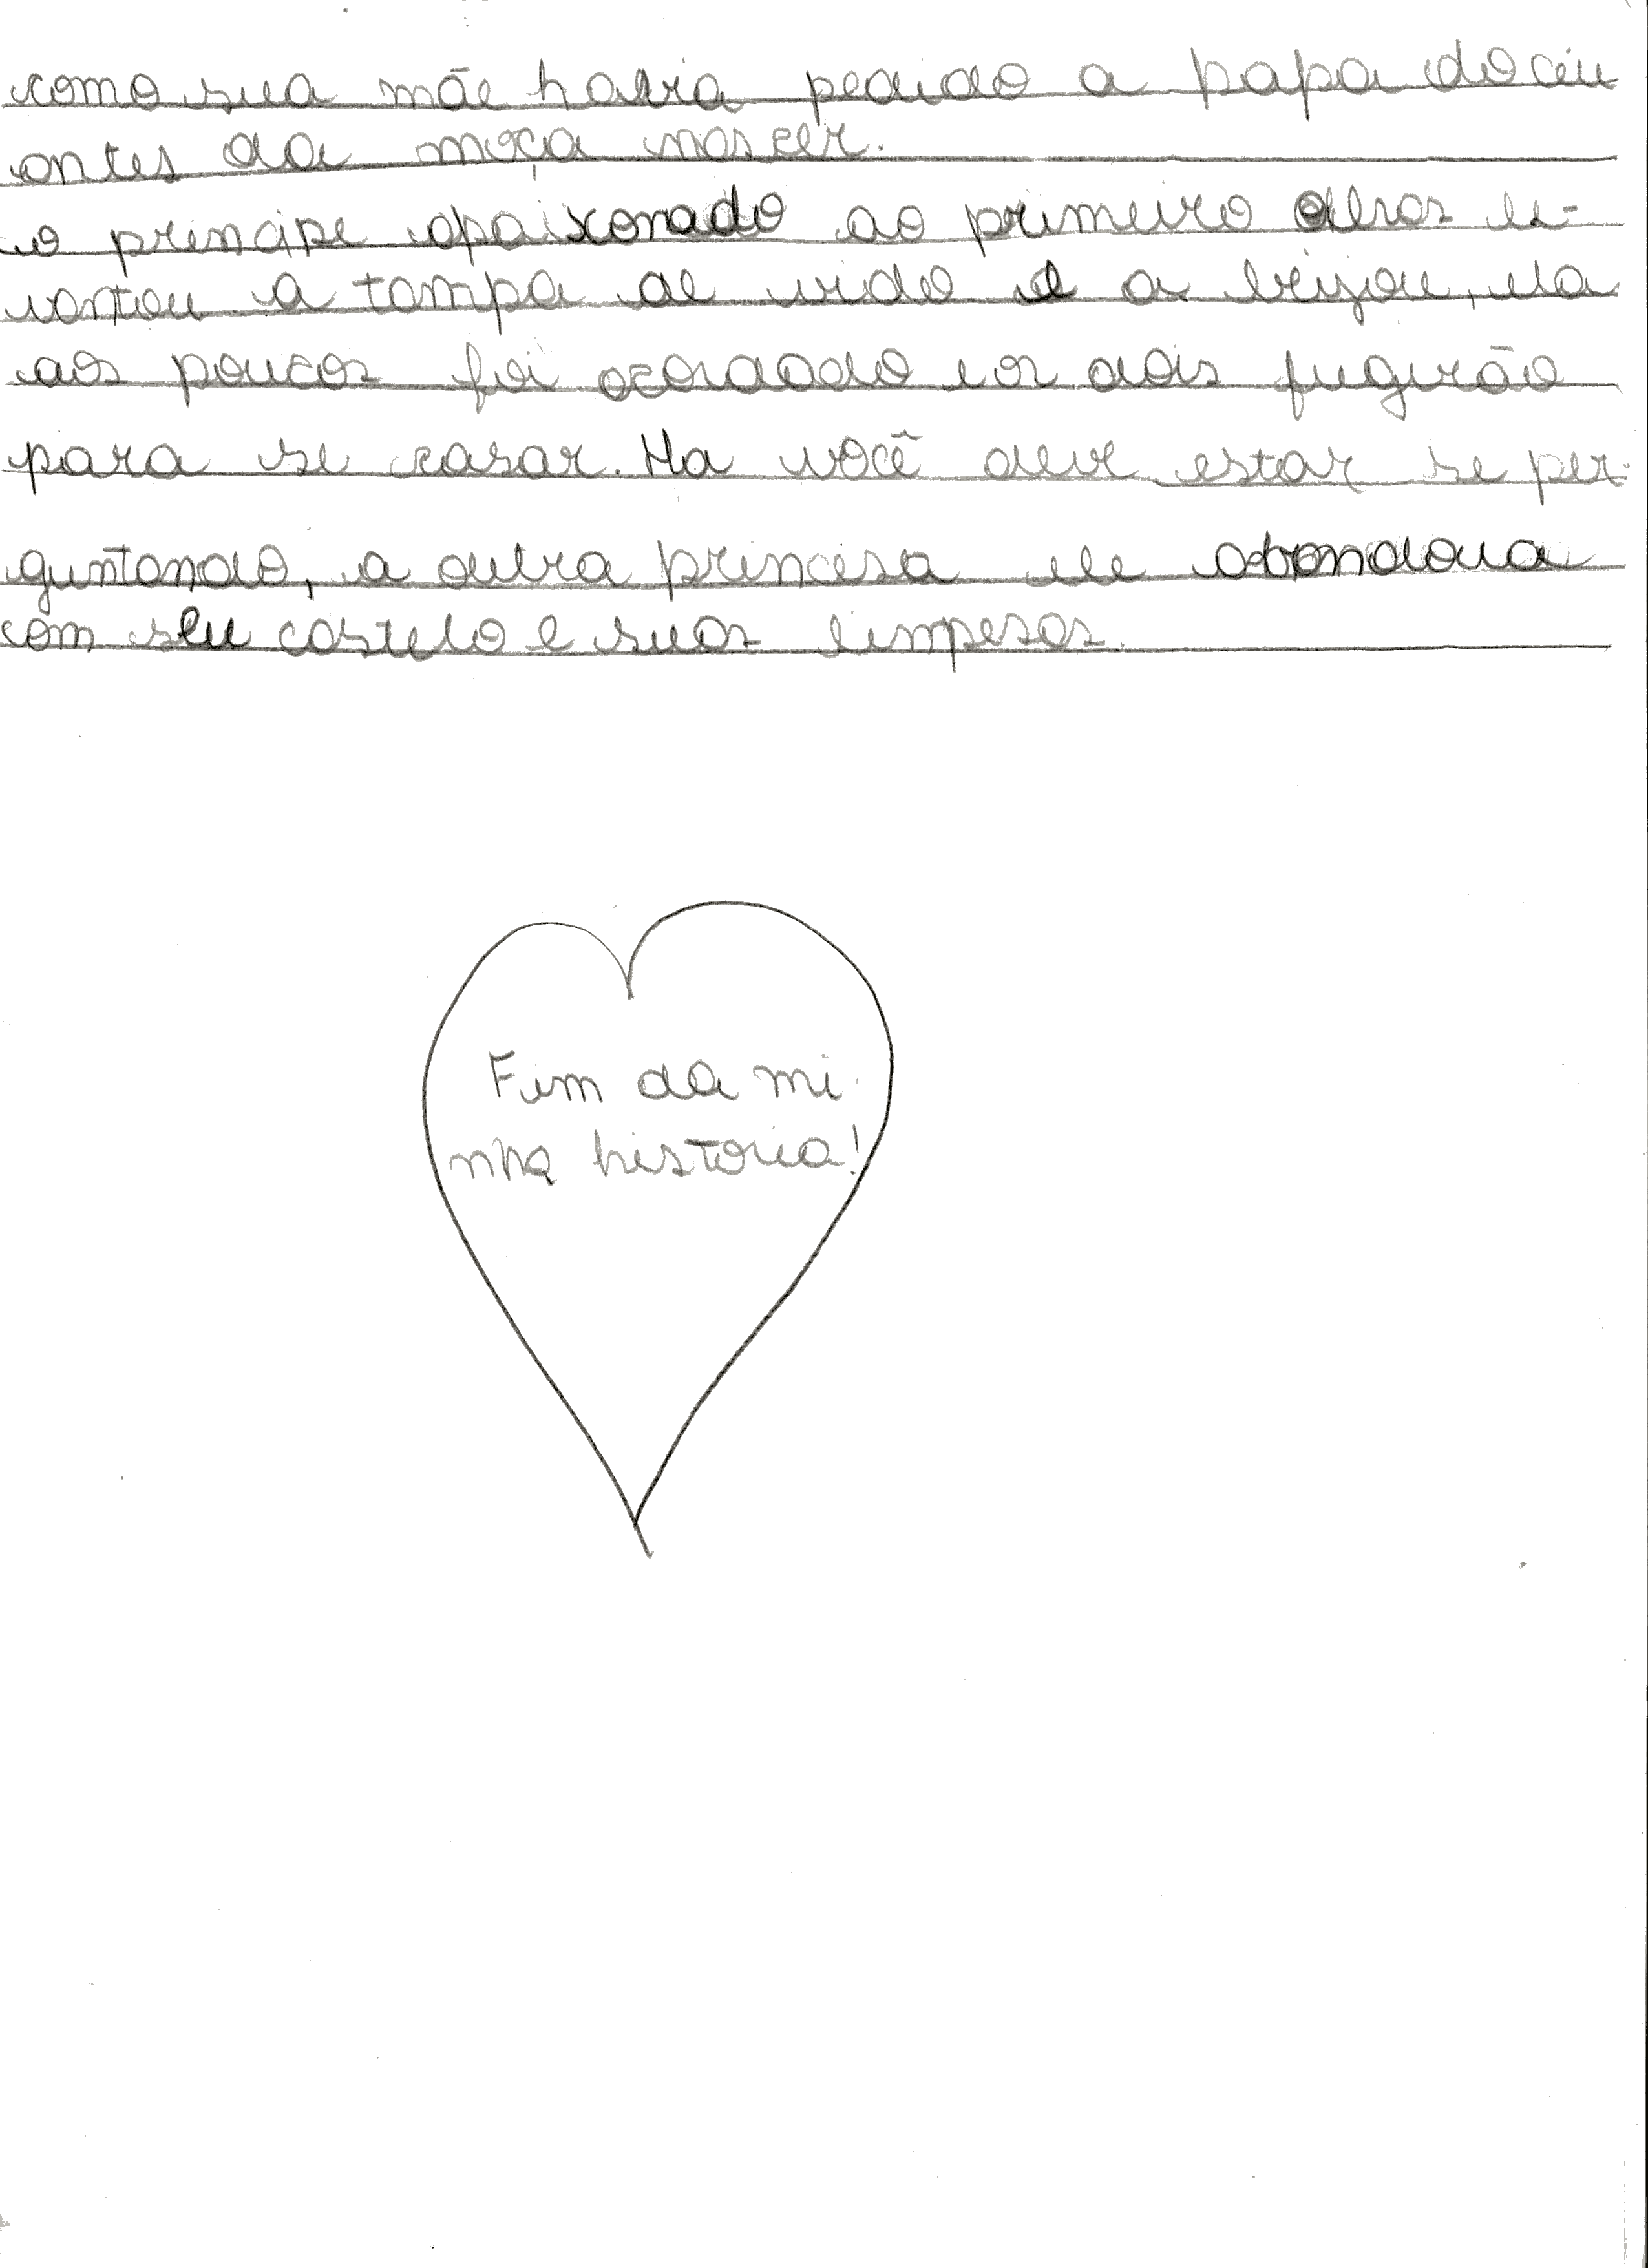 como sua mãe havia pedido a papa do céu
antes da moça nascer.
o principe apaixonado ao primeiro olhos le-
vantou a tampa de vido e a beijou, ela
aos poucos foi acordado e os dois fugirão
para se casar. Ha você deve estar se per-
guntando, a outra princesa ele abandona
com seu castelo e suas limpesas.
Fim da mi
nha historia!